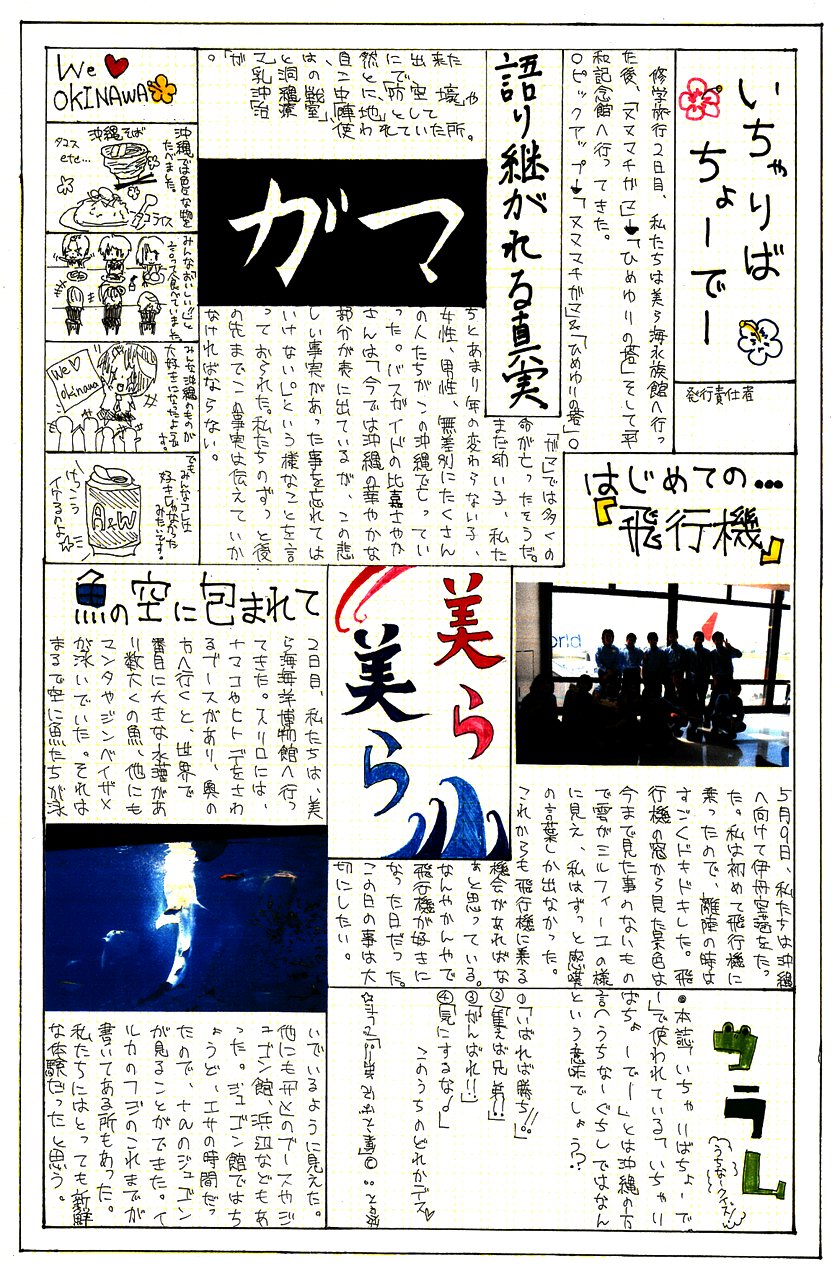 いちゃりば
ちょーでー
発行責任者
修学旅行2日目、私たちは美ら海水族館へ行っ
た後、「ヌヌマチガマ」→「ひめゆりの塔」そして平
和記念館へ行ってきた。
○ピックアップ→「ヌヌマチガマ」&「ひめゆりの塔」○
語り継がれる真実
「ガマ」では多くの
命が亡ったそうだ。
まだ幼い子、私た
ちとあまり年の変わらない子、
女性、男性、無差別にたくさん
の人たちがこの沖縄で亡ってい
った。バスガイドの比嘉さやか
さんは「今では沖縄の華やかな
部分が表に出ているが、この悲
しい事実があった事を忘れては
いけない。」という様なことを言
っておられた。私たちのずっと後
の先までこの事実は伝えていか
なければならない。
ガマ
We OKINAWA
沖縄では色々な物を
たべました。
沖縄そば
タコス
etc…
タコライス
みんな「おいしい」と
言って食べていました。
みんな沖縄のものが
大好きになったようです。
We
okinawa
でもみんなコレは
好きじゃなかった
みたいです。
けっこう
イケるのになぁ
A&W
はじめての…
『飛行機』
5月9日、私たちは沖縄
へ向けて伊丹空港をたっ
た。私は初めて飛行機に
乗ったので、離陸の時は
すごくドキドキした。飛
行機の窓から見た景色は
今まで見た事のないもの
で雲がミルフィーユの様
に見え、私はずっと感嘆
の言葉しか出なかった。
これからも飛行機に乗る
機会があればな
ぁと思っている。
なんやかんやで
飛行機が好きに
なった日だった。
この日の事は大
切にしたい。
美ら
美ら
魚の空に包まれて
2日目、私たちは、美
ら海海洋博物館へ行っ
てきた。入り口には、
ナマコやヒトデをさわ
るブースがあり、奥の
方へ行くと、世界で
番目に大きな水槽があ
り数大くの魚、他にも
マンタやジンベイザメ
が泳いでいた。それは
まるで空に魚たちが泳
いでいるように見えた。
他にもサメのブースやジ
ュゴン館、浜辺などもあ
った。ジュゴン館ではち
ょうど、エサの時間だっ
たので、ナんのジュゴン
が見ることができた。イ
ルカのフジのこれまでが
書いてある所もあった。
私たちにはとっても新鮮
な体験だったと思う。
クラム
うちなークイズ
●本誌「いちゃりばちょーで
ー」で使われている「いちゃり
ばちょーでー」とは沖縄の方
言(うちなーぐち)ではなん
という意味でしょう??
①「いばれば勝ち!!」
②「集えば兄弟!!」
③「がんばれ!!」
④「気にするな♪」
このうちのどれかデス♡